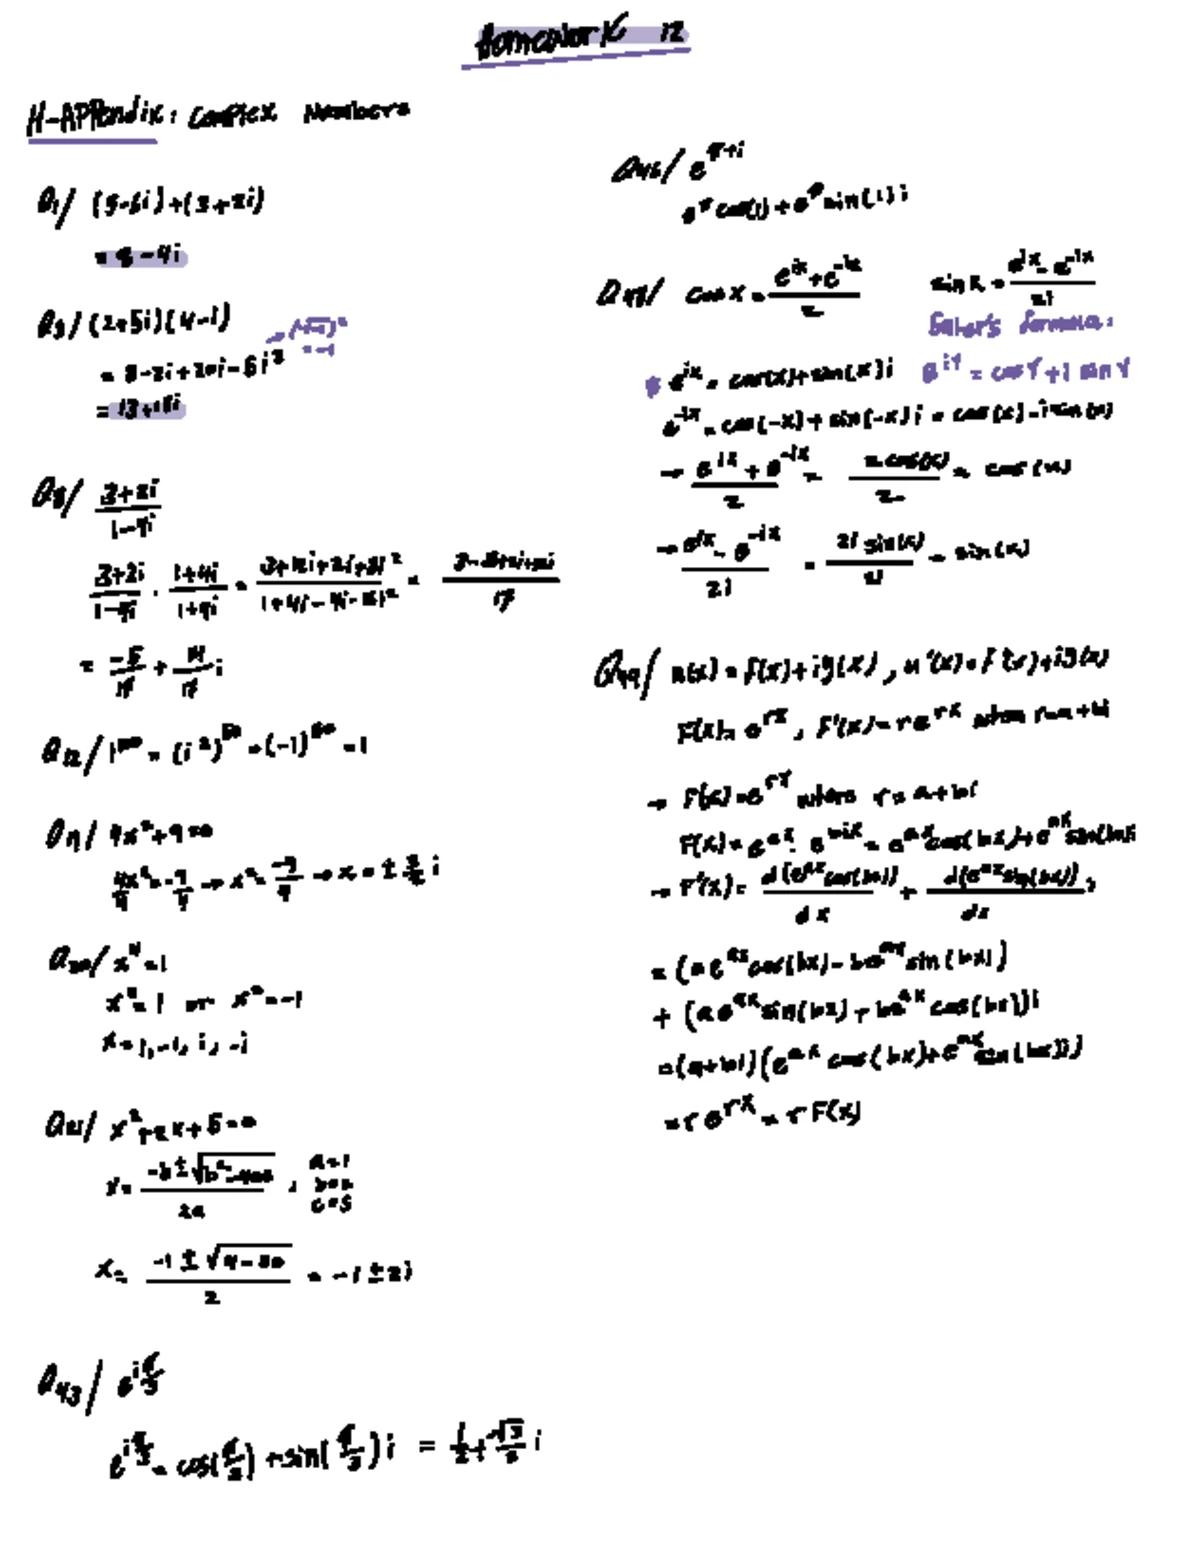 Homework 12
H-Appendix: Complex Numbers
Q1/ (5-6i)+(3+2i)
= 8-4i
Q3/ (2+5i)(4-i)
= 8-2i+20i-5i² → (√-1)² = -1
= 13+18i
Q8/ (3+2i)/(1-4i)
(3+2i)/(1-4i) · (1+4i)/(1+4i) =
= -5/17 + 14/17 i
Q12/ = (i²)⁵⁰ = (-1)⁵⁰ = 1
4x²+9=0
→ x² = -9/4 → x = ±3/2 i
Q20/ x⁴=1
x²=1 or x²=-1
x=1,-1,i,-i
Q21/ x²+2x+5=0
x = (-b±√(b²-4ac))/2a , a=1 b=2 c=5
= -1±2i
Q43/ e^(iπ/3)
e^(iπ/3) = cos(π/3)+sin(π/3)i = 1/2+√3/2 i
Q46/ e^(π+i)
e^π cos(1)+e^π sin(1)i
Q48/ cos x = (e^(ix)+e^(-ix))/2 sin x = (e^(ix)-e^(-ix))/2i
Euler's formula:
e^(ix) = cos(x)+sin(x)i e^(iy) = cos y+i sin y
e^(-ix) = cos(-x)+sin(-x)i = cos(x)-isin(x)
→ (e^(ix)+e^(-ix))/2 = 2cos(x)/2 = cos(x)
→ (e^(ix)-e^(-ix))/2i = 2i sin(x)/2i = sin(x)
Q49/ u(x) = f(x)+ig(x), u'(x) = f'(x)+ig'(x)
F(x) = e^(rx), F'(x) = re^(rx) when r=a+bi
→ F(x) = e^(rx) where r = a+bi
→ F'(x) =
= (ae^(ax)cos(bx)-be^(ax)sin(bx))
+ (ae^(ax)sin(bx)+be^(ax)cos(bx))i
= (a+bi)(e^(ax)cos(bx)+e^(ax)sin(bx)i)
= re^(rx) = rF(x)